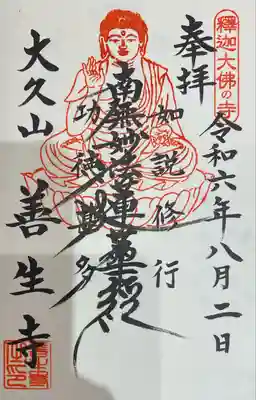 釋迦大佛の寺
奉拝
令和六年八月二日
如説修行
南無妙法蓮華経
功徳甚多
大久山
善生寺